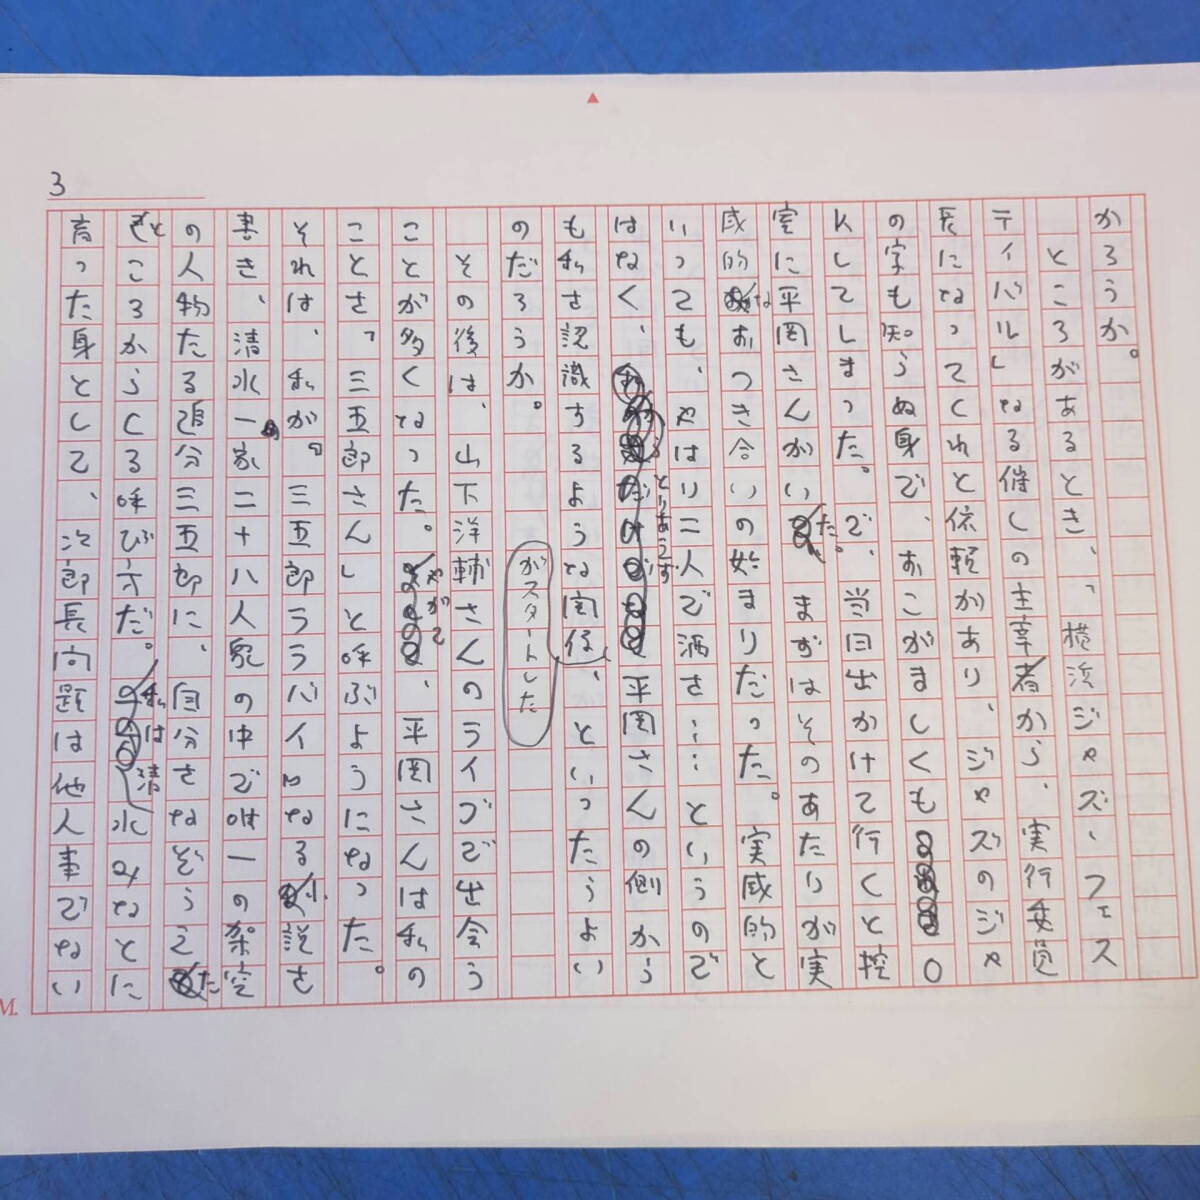 3
かろうか。
ところがあるとき、「横浜ジャズ・フェス
ティバル」なる催しの主宰者から、実行委員
長になってくれと依頼があり、ジャズのジャ
の字も知らぬ身で、おこがましくもO
Kしてしまった。で、当日出かけて行くと控
室に平岡さんがいた。まずはそのあたりが実
感的なおつき合いの始まりだった。実感的と
いっても、やはり二人で酒を……というので
はなく、とりあえず平岡さんの側からも
私を認識するような関係、といったうよい
がスタートした
のだろうか。
その後は、山下洋輔さんのライブで出会う
ことが多くなった。やがて、平岡さんは私の
ことを、「三五郎さん」と呼ぶようになった。
それは、私が『三五郎ラライバイ』なる小説を
書き、清水一家二十八人衆の中で唯一の架空
の人物たる追分三五郎に、自分をなぞらえた
ところからくる呼び方だ。私は清水みなとに
育った身として、次郎長問題は他人事でない
M.